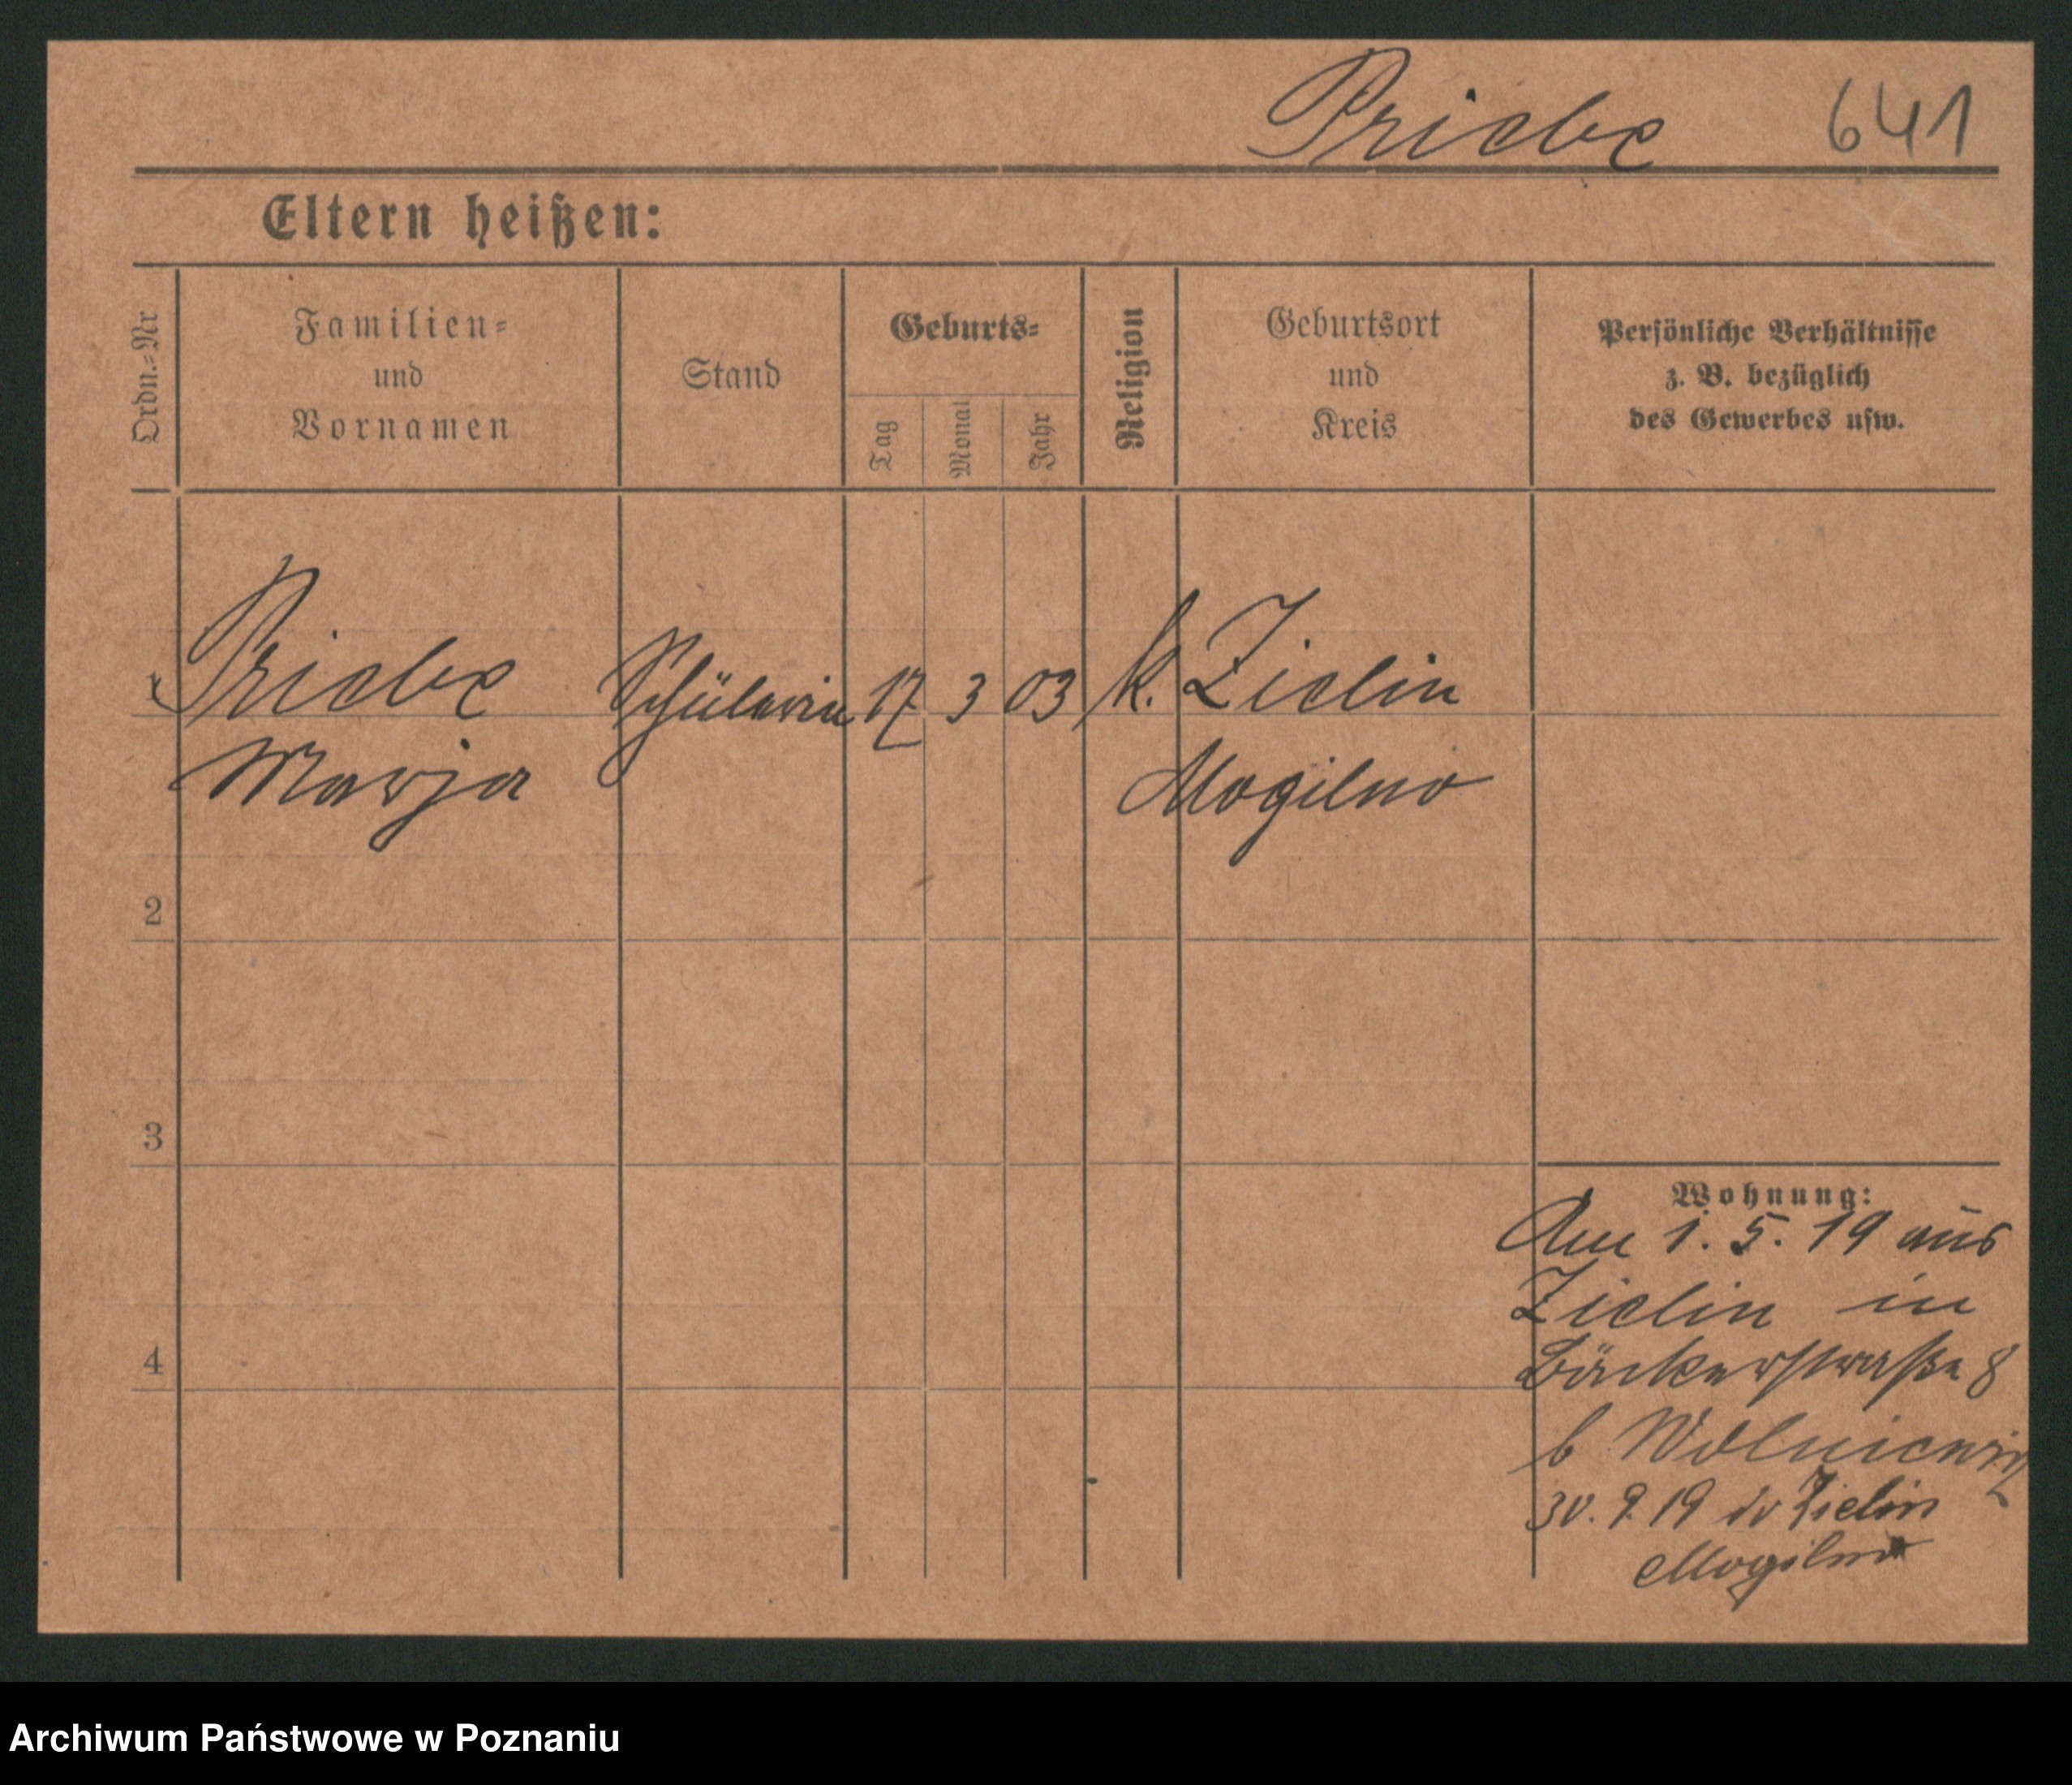 Priebe 641
Eltern heißen:
Ordn.-Nr
Familien-
und
Vornamen
Stand
Geburts-
Tag
Monat
Jahr
Religion
Geburtsort
und
Kreis
Persönliche Verhältnisse
z. B. bezüglich
des Gewerbes usw.
1 Priebe Schülerin 17 3 03 k. Zielin
Marja Mogilno
2
3
Wohnung:
Am 1. 5. 19 aus
Zielin in
4 Bäckerstraße 8
b Wolniewicz
30. 9 19 Zielin
Mogilno
Archiwum Państwowe w Poznaniu